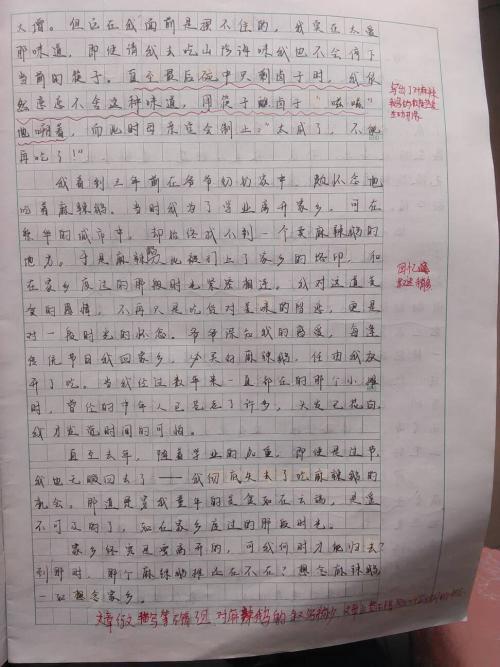 太懵。但这在我面前是摆不住的，我实在太爱
那味道，即使请我去吃山珍海味我也不会停下
当前的筷子。直至最后碗中只剩卤子时，我依
然恋恋不舍这种味道，用筷子蘸卤子“嗞嗞”
地嘬着，而此时母亲定会制止：“太咸了，不能
再吃了！”
我看到三年前在爷爷奶奶家中，
吃着麻辣鹅。当时我为了学业离开家乡，可在
繁华的城市中，却始终找不到一个卖麻辣鹅的
地方。于是麻辣鹅也被打上了家乡的烙印，和
在家乡度过的那段时光紧紧相连。我对这道美
食的感情，不再只是吃货对美味的陪恋，更是
对一段时光的怀念。爷爷深知我的喜爱，每逢
传统节日我回家乡，必买好麻辣鹅，任由我放
开了吃。当我经过数年来一直都在的那个小摊
时，曾经的中年人已是老了许多，头发已花白，
我才发觉时间的可怕。
直至去年，随着学业的加重，即使是过节
我也无暇回去了——我彻底失去了吃麻辣鹅的
机会。那道贯穿我童年的美食如在云端，是遥
不可及的了，如在家乡度过的那段时光。
家乡终究是要离开的，可我何时才能归去？
到那时，那个麻辣鹅摊还在不在？想念麻辣鹅
一如想念家乡。
写出了对麻辣
生动形象
回忆
文章 描写 对麻辣鹅的